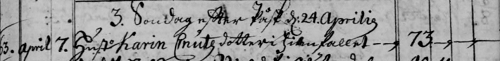 3. Söndag efter Påsk d: 24. Aprilis
3. April 7. Hust. Karin Knuts dotter i 73.